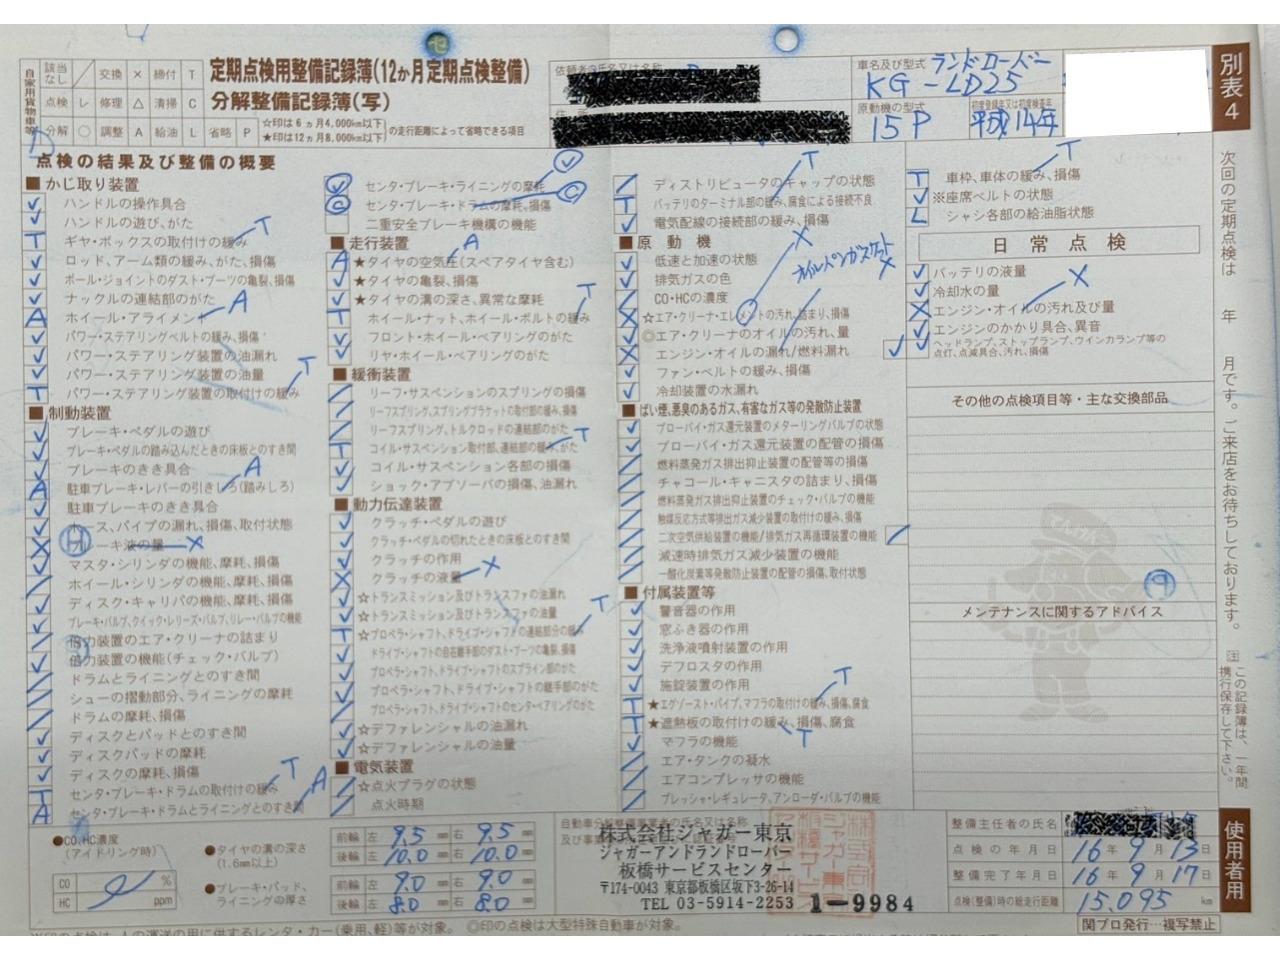 セ
自家用貨物車等
該当なし ／ 交換 × 締付 T
点検 レ 修理 △ 清掃 C
分解 ○ 調整 A 給油 L 省略 P
定期点検用整備記録簿(12か月定期点検整備)
分解整備記録簿(写)
☆印は6ヵ月4,000km以下
★印は12ヵ月8,000km以下
の走行距離によって省略できる項目
依頼者の氏名又は名称
車名及び型式 ランドローバー
KG-LD25
原動機の型式
15P
初度登録年又は初度検査年
平成14年
別表4
点検の結果及び整備の概要
■かじ取り装置
ハンドルの操作具合
ハンドルの遊び、がた
T ギヤ・ボックスの取付けの緩み T
ロッド、アーム類の緩み、がた、損傷
ボール・ジョイントのダスト・ブーツの亀裂、損傷
ナックルの連結部のがた
A ホイール・アライメント A
パワー・ステアリングベルトの緩み、損傷
パワー・ステアリング装置の油漏れ
パワー・ステアリング装置の油量
T パワー・ステアリング装置の取付けの緩み T
■制動装置
ブレーキ・ペダルの遊び
ブレーキ・ペダルの踏み込んだときの床板とのすき間
ブレーキのきき具合
A 駐車ブレーキ・レバーの引きしろ(踏みしろ) A
駐車ブレーキのきき具合
ホース、パイプの漏れ、損傷、取付状態
ブレーキ液の量 ×
マスタ・シリンダの機能、摩耗、損傷
ホイール・シリンダの機能、摩耗、損傷
ディスク・キャリパの機能、摩耗、損傷
ブレーキ・バルブ、クイック・レリーズ・バルブ、リレー・バルブの機能
倍力装置のエア・クリーナの詰まり
倍力装置の機能(チェック・バルブ)
ドラムとライニングとのすき間
シューの摺動部分、ライニングの摩耗
ドラムの摩耗、損傷
ディスクとパッドとのすき間
ディスクパッドの摩耗
ディスクの摩耗、損傷
T センタ・ブレーキ・ドラムの取付けの緩み T
A センタ・ブレーキ・ドラムとライニングとのすき間 A
センタ・ブレーキ・ライニングの摩耗
C センタ・ブレーキ・ドラムの摩耗、損傷 C
二重安全ブレーキ機構の機能
■走行装置
A ★タイヤの空気圧(スペアタイヤ含む) A
★タイヤの亀裂、損傷
★タイヤの溝の深さ、異常な摩耗
T ホイール・ナット、ホイール・ボルトの緩み T
フロント・ホイール・ベアリングのがた
リヤ・ホイール・ベアリングのがた
■緩衝装置
リーフ・サスペンションのスプリングの損傷
リーフスプリング、スプリングブラケットの取付部の緩み、損傷
リーフスプリング、トルクロッドの連結部のがた
T コイル・サスペンション取付部、連結部の緩み、がた T
コイル・サスペンション各部の損傷
ショック・アブソーバの損傷、油漏れ
■動力伝達装置
クラッチ・ペダルの遊び
クラッチ・ペダルの切れたときの床板とのすき間
クラッチの作用
× クラッチの液量 ×
☆トランスミッション及びトランスファの油漏れ
☆トランスミッション及びトランスファの油量
T ☆プロペラ・シャフト、ドライブ・シャフトの連結部分の緩み T
ドライブ・シャフトの自在継手部のダスト・ブーツの亀裂、損傷
プロペラ・シャフト、ドライブ・シャフトのスプライン部のがた
プロペラ・シャフト、ドライブ・シャフトの継手部のがた
プロペラ・シャフト、ドライブ・シャフトのセンタ・ベアリングのがた
☆デファレンシャルの油漏れ
☆デファレンシャルの油量
■電気装置
☆点火プラグの状態
点火時期
ディストリビュータのキャップの状態
T バッテリのターミナル部の緩み、腐食による接続不良 T
電気配線の接続部の緩み、損傷
■原動機
低速と加速の状態
排気ガスの色
CO・HCの濃度
☆エア・クリーナ・エレメントの汚れ、詰まり、損傷 ×
◎エア・クリーナのオイルの汚れ、量
オイルパンガスケット ×
エンジン・オイルの漏れ/燃料漏れ
ファン・ベルトの緩み、損傷
冷却装置の水漏れ
■ばい煙、悪臭のあるガス、有害なガス等の発散防止装置
ブローバイ・ガス還元装置のメターリングバルブの状態
ブローバイ・ガス還元装置の配管の損傷
燃料蒸発ガス排出抑止装置の配管等の損傷
チャコール・キャニスタの詰まり、損傷
燃料蒸発ガス排出抑止装置のチェック・バルブの機能
触媒反応方式等排出ガス減少装置の取付けの緩み、損傷
二次空気供給装置の機能/排気ガス再循環装置の機能
減速時排気ガス減少装置の機能
一酸化炭素等発散防止装置の配管の損傷、取付状態
■付属装置等
警音器の作用
窓ふき器の作用
洗浄液噴射装置の作用
デフロスタの作用
施錠装置の作用
T ★エグゾースト・パイプ、マフラの取付けの緩み、損傷、腐食 T
T ★遮熱板の取付けの緩み、損傷、腐食 T
マフラの機能
エア・タンクの凝水
エアコンプレッサの機能
プレッシャ・レギュレータ、アンローダ・バルブの機能
T 車枠、車体の緩み、損傷 T
※座席ベルトの状態
L シャシ各部の給油脂状態
日常点検
バッテリの液量
冷却水の量
× エンジン・オイルの汚れ及び量 ×
エンジンのかかり具合、異音
ヘッドランプ、ストップランプ、ウインカランプ等の
点灯、点滅具合、汚れ、損傷
その他の点検項目等・主な交換部品
メンテナンスに関するアドバイス
次回の定期点検は　年　月です。ご来店をお待ちしております。
注 この記録簿は、一年間携行保存して下さい。
使用者用
●CO、HC濃度
(アイドリング時)
CO %
HC ppm
●タイヤの溝の深さ
(1.6mm以上)
前輪 左 9.5 mm 右 9.5 mm
後輪 左 10.0 mm 右 10.0 mm
●ブレーキ・パッド、
ライニングの厚さ
前輪 左 9.0 mm 右 9.0 mm
後輪 左 8.0 mm 右 8.0 mm
自動車分解整備事業者の氏名又は名称
株式会社ジャガー東京
ジャガーアンドランドローバー
板橋サービスセンター
〒174-0043 東京都板橋区坂下3-26-14
TEL 03-5914-2253
1-9984
整備主任者の氏名
点検の年月日 16年9月13日
整備完了年月日 16年9月17日
点検(整備)時の総走行距離 15,095 km
関ブロ発行…複写禁止
◎印の点検は大型特殊自動車が対象。